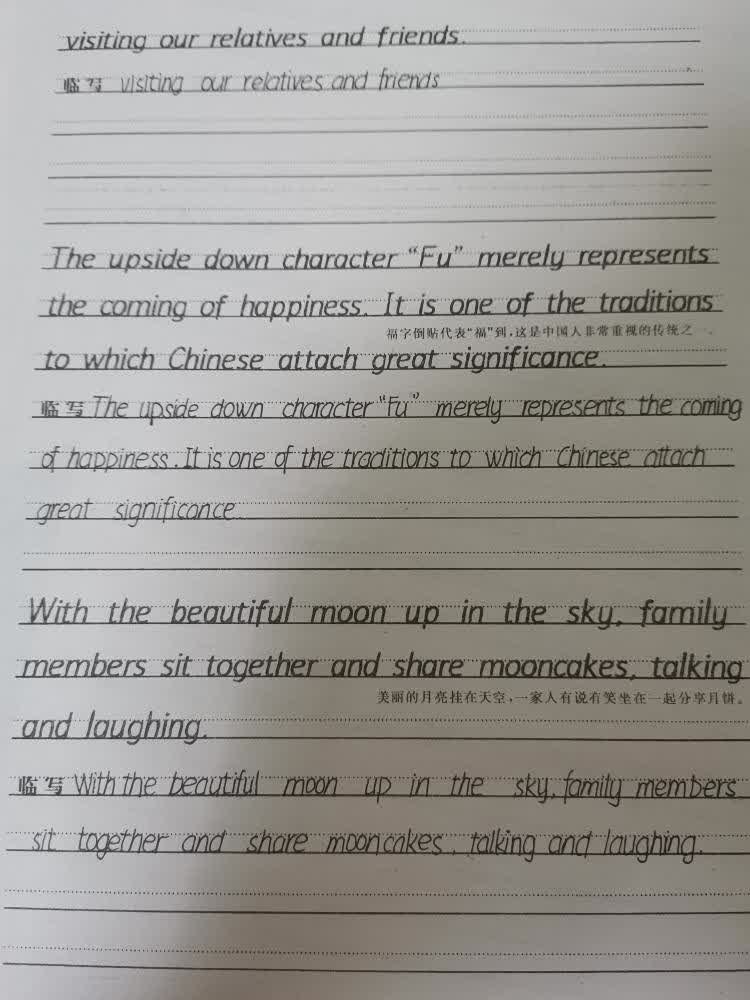 visiting our relatives and friends.
临写 visiting our relatives and friends
The upside down character “Fu” merely represents
the coming of happiness. It is one of the traditions
福字倒贴代表“福”到，这是中国人非常重视的传统之一。
to which Chinese attach great significance.
临写 The upside down character “Fu” merely represents the coming
of happiness. It is one of the traditions to which Chinese attach
great significance
With the beautiful moon up in the sky, family
members sit together and share mooncakes, talking
美丽的月亮挂在天空，一家人有说有笑坐在一起分享月饼。
and laughing.
临写 With the beautiful moon up in the sky, family members
sit together and share mooncakes, talking and laughing.